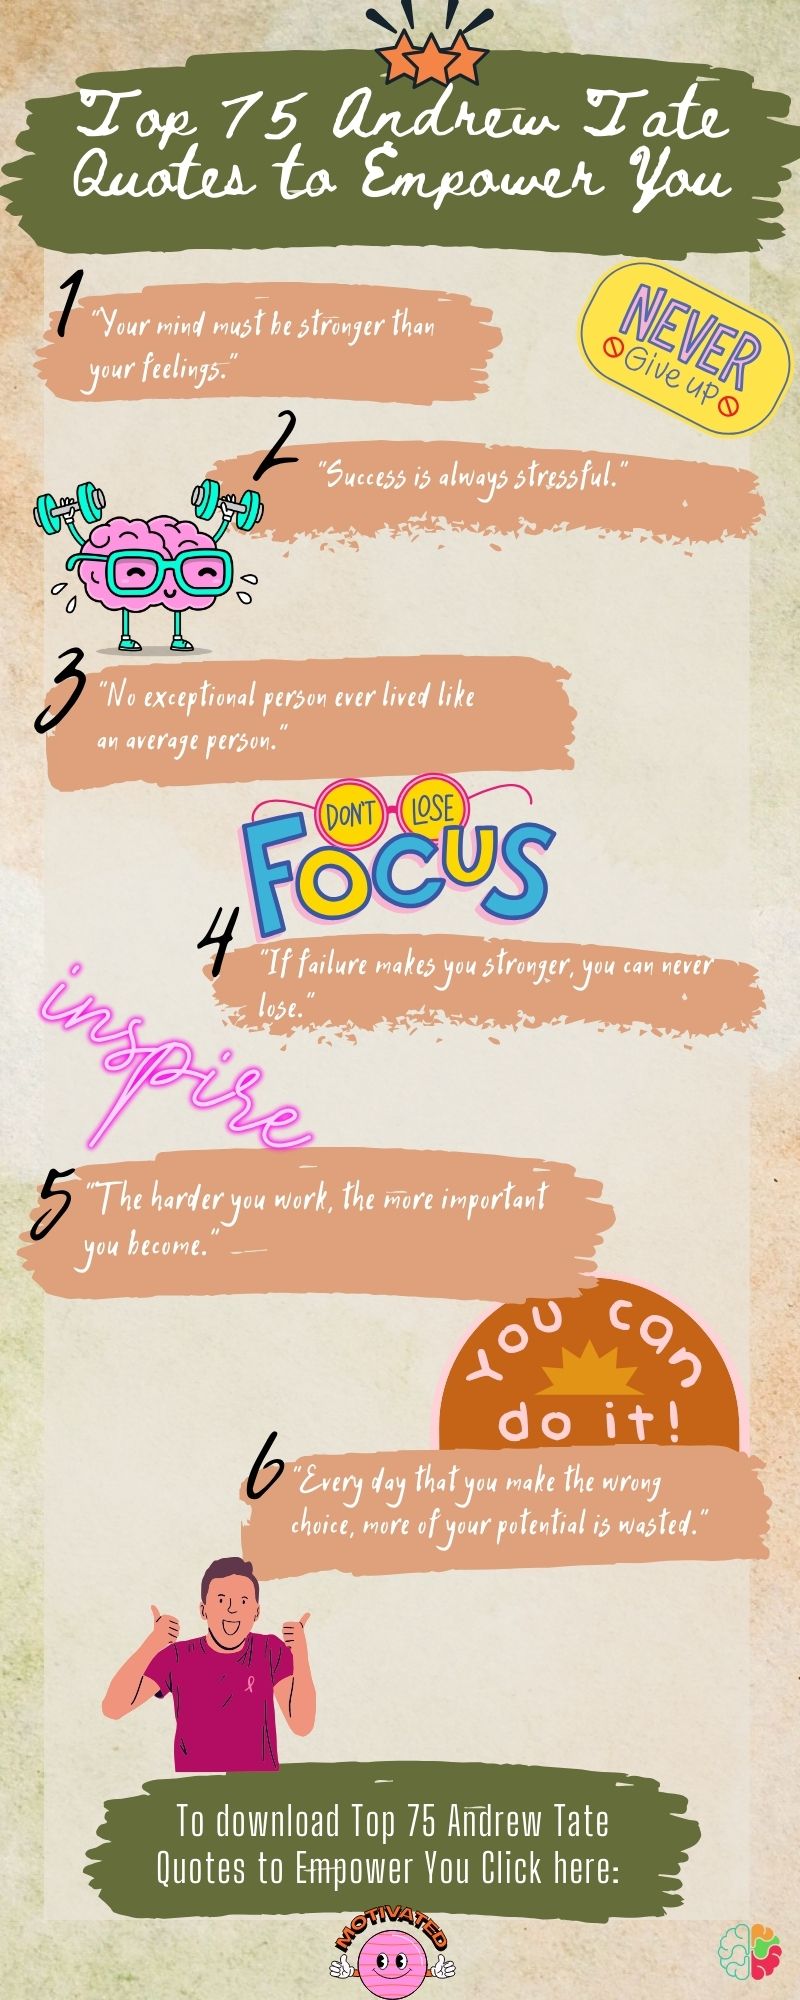 Top 75 Andrew Tate
Quotes to Empower You
1
"Your mind must be stronger than
your feelings."
NEVER
Give up
2
"Success is always stressful."
3
"No exceptional person ever lived like
an average person."
DON'T LOSE
FOCUS
4
"If failure makes you stronger, you can never
lose."
inspire
5
"The harder you work, the more important
you become."
You can
do it!
6
"Every day that you make the wrong
choice, more of your potential is wasted."
To download Top 75 Andrew Tate
Quotes to Empower You Click here:
MOTIVATED